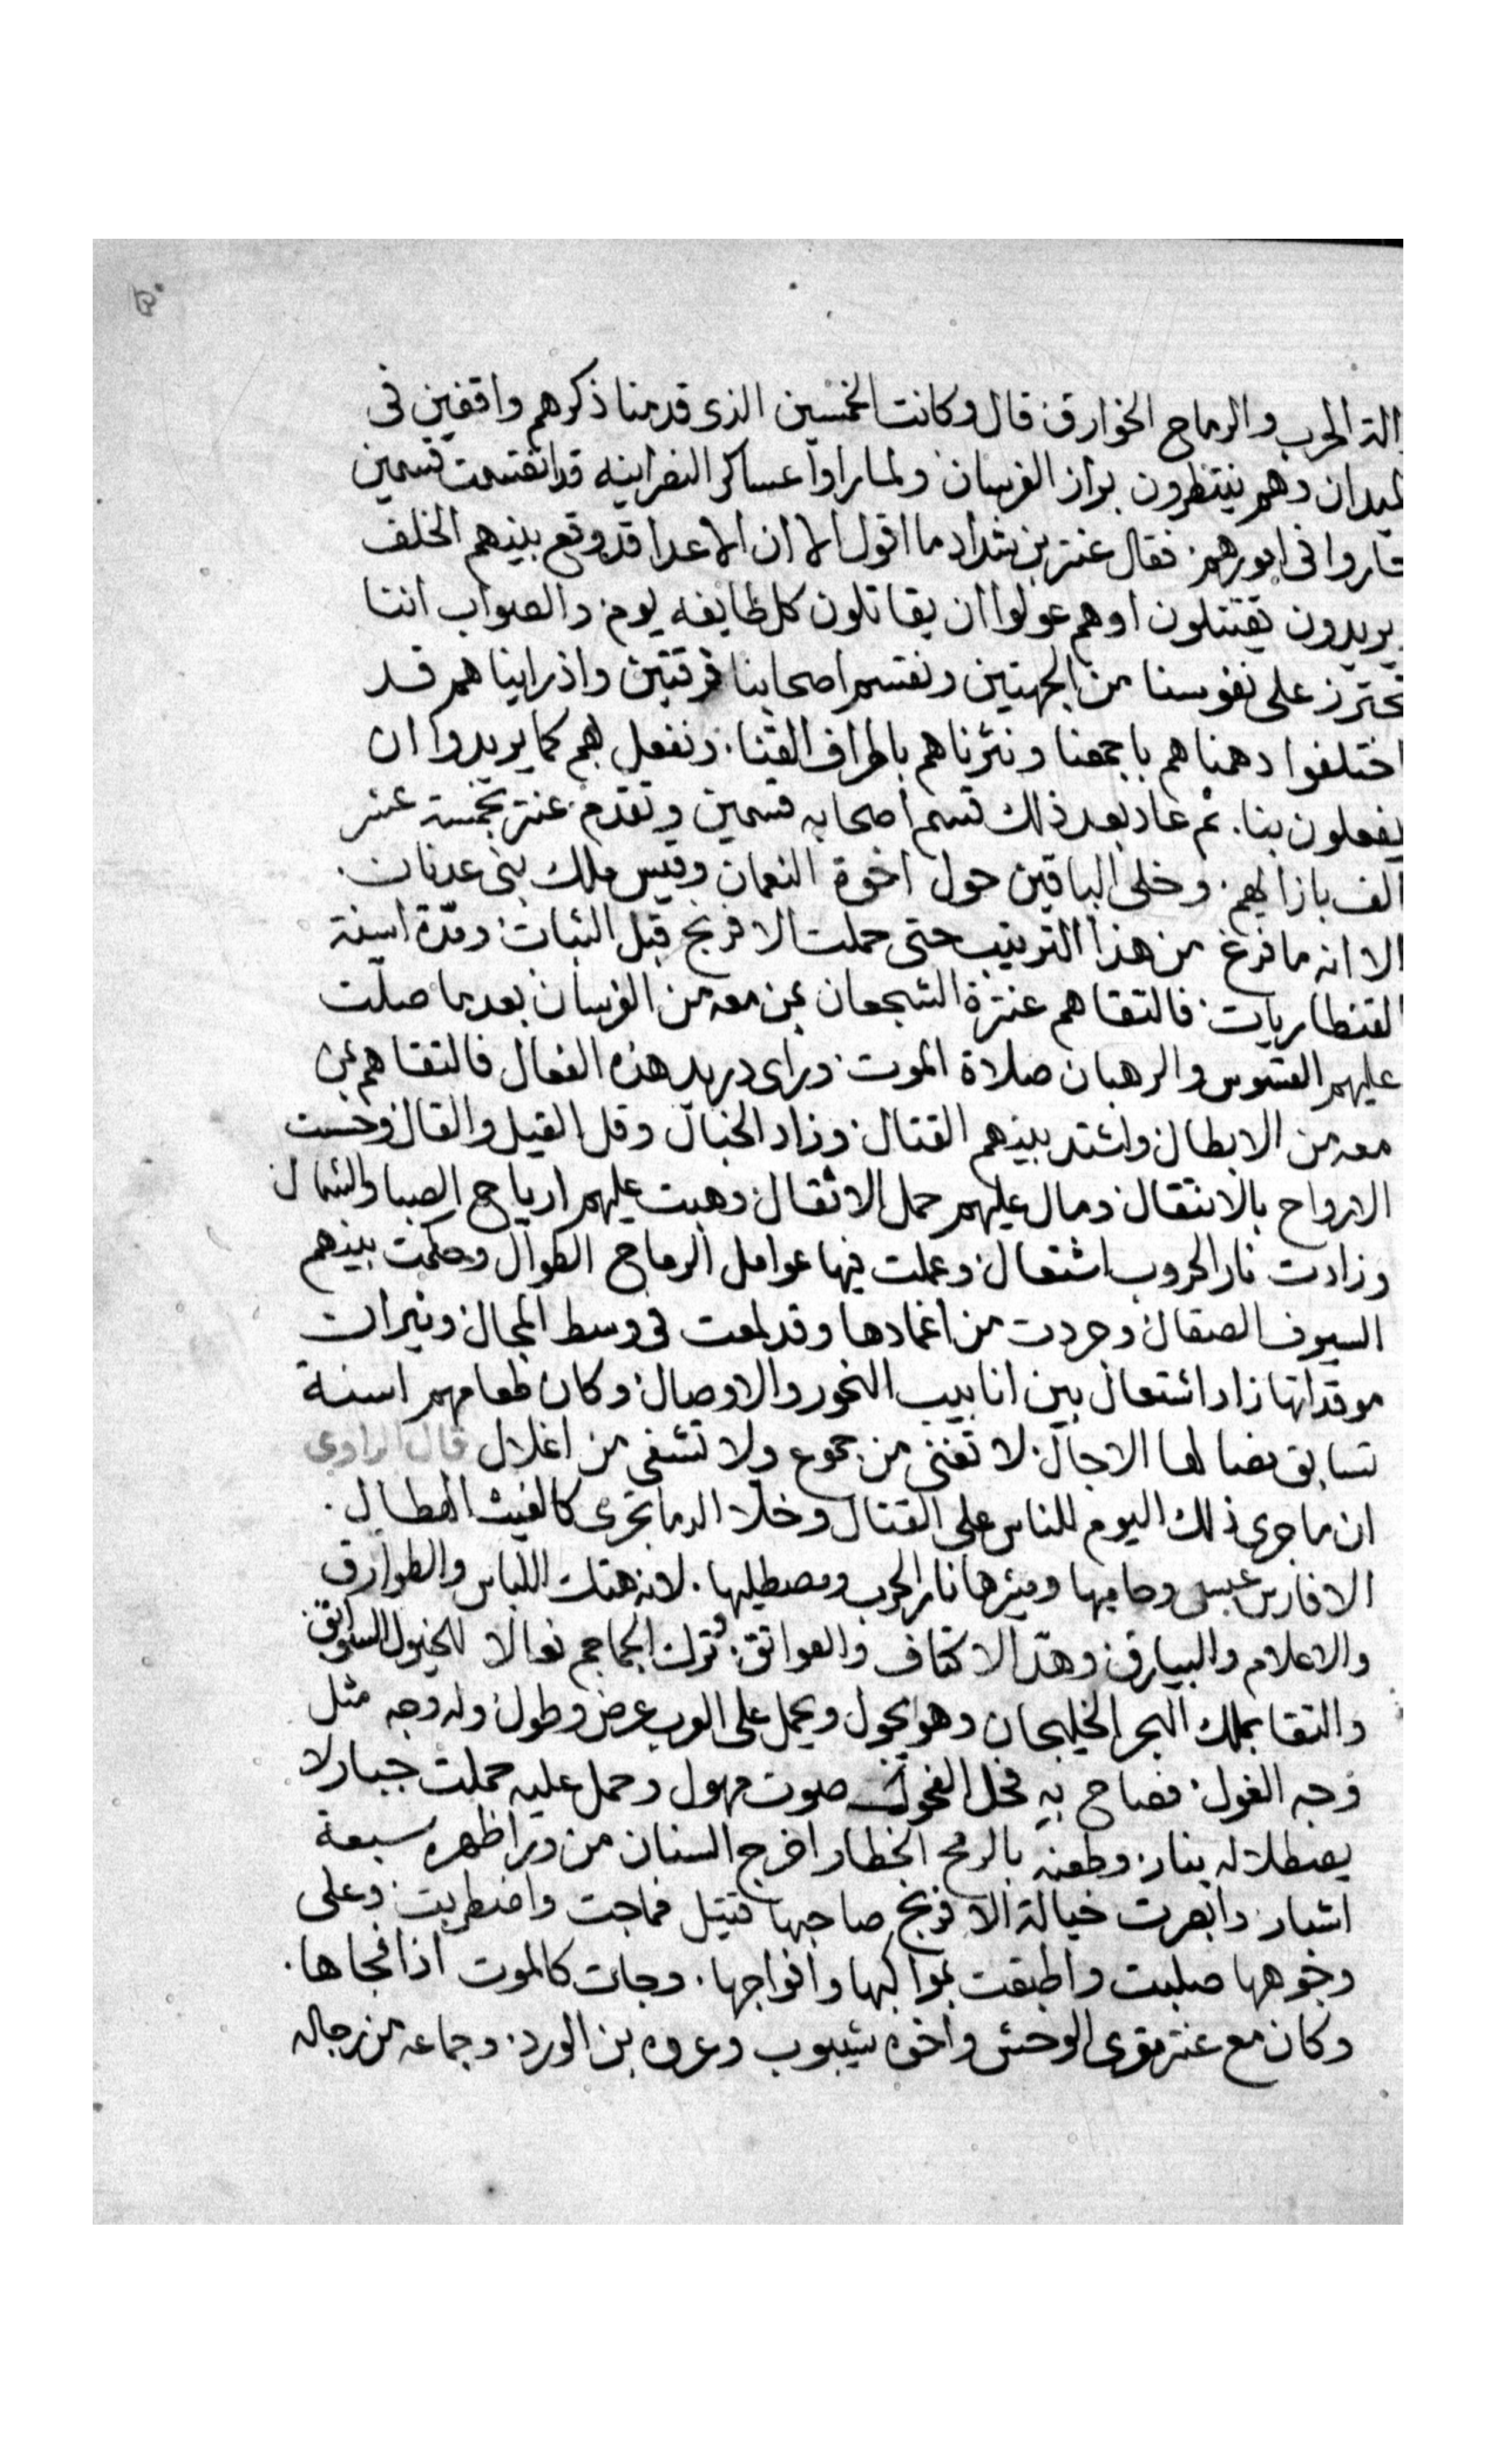 الة الحرب والرماح الخوارق قال وكانت الخمسين الذى قدمنا ذكرهم واقفين فى
لميدان وهم ينتظرون براز الفرسان ولما راوا عساكر النصرانيه قد انقسمت قسمين
حاروا فى امورهم فقال عنتر بن شداد ما اقول الا ان الاعدا قد وقع بينهم الخلف
يريدون يقتتلون او هم عولوا ان يقاتلون كل طايفه يوم والصواب اننا
نحترز على نفوسنا من الجهتين ونقسم اصحابنا فرقتين واذ راينا هم قد
اختلفوا دهمناهم باجمعنا ونثرناهم باطراف القنا ونفعل بهم كما يريدوا ان
يفعلون بنا. ثم عاد بعد ذلك قسم اصحابه قسمين وتقدم عنتر بخمسة عشر
الف بازايهم وخلى الباقين حول اخوة النعمان وقيس ملك بنى عدنان.
الا انه ما فرغ من هذا الترتيب حتى حملت الافرنج قبل الثبات ومدة اسنة
القنطاريات فالتقاهم عنترة الشجعان بمن معه من الفرسان بعدما صلت
عليهم القسوس والرهبان صلاة الموت وراى دريد هذه الفعال فالتقاهم بمن
معه من الابطال واشتد بينهم القتال وزاد الخبال وقل القيل والقال وحست
الارواح بالانتقال ومال عليهم حمل الاثقال وهبت عليهم ارياح الصبا والشمال
وزادت نار الحروب اشتعال وعملت فيها عوامل الرماح الطوال وحكمت بينهم
السيوف الصقال وجردت من اغمادها وقد لمعت فى وسط المجال ونيران
موقداتها زاد اشتعال بين انابيب النحور والاوصال وكان طعامهم اسنة
تسابق مضا لها الاجال لا تغنى من جوع ولا تشفى من اغلال قال الراوى
ان ما جرى ذلك اليوم للناس على القتال وخلا الدما تجرى كالغيث الهطال.
الا فارس عبس وحاميها ومثيرها نار الحرب ومصطليها. لانه هتك اللباس والطوارق
والاعلام والبيارق وهد الاكتاف والعواتق وترك الجماجم نعالا للخيول السوابق
والتقا بملك البحر الخليجان وهو يجول ويحمل على العرب عرض وطول وله وجه مثل
وجه الغول فصاح به فحل الفحول صوت مهول وحمل عليه حملت جبار لا
يصطلا له بنار وطعنه بالرمح الخطار اخرج السنان من ورا ظهره سبعة
اشبار وابصرت خيالة الافرنج صاحبها قتيل فماجت واضطربت وعلى
وجوهها صلبت واطبقت بمواكبها وافواجها. وجات كالموت اذا فجاها.
وكان مع عنتر مقرى الوحش واخوه شيبوب وعروه بن الورد وجماعه من رجاله